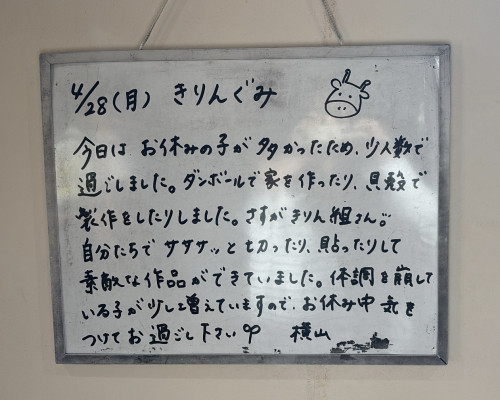 4/28(月) きりんぐみ
今日は お休みの子が 多かったため、少人数で
過ごしました。ダンボールで 家を作ったり、貝殻で
製作をしたりしました。さすがきりん組さん!!
自分たちで サササッと 切ったり、貼ったりして
素敵な作品ができていました。体調を崩して
いる子が少し増えていますので、お休み中 気を
つけてお過ごし下さい 横山